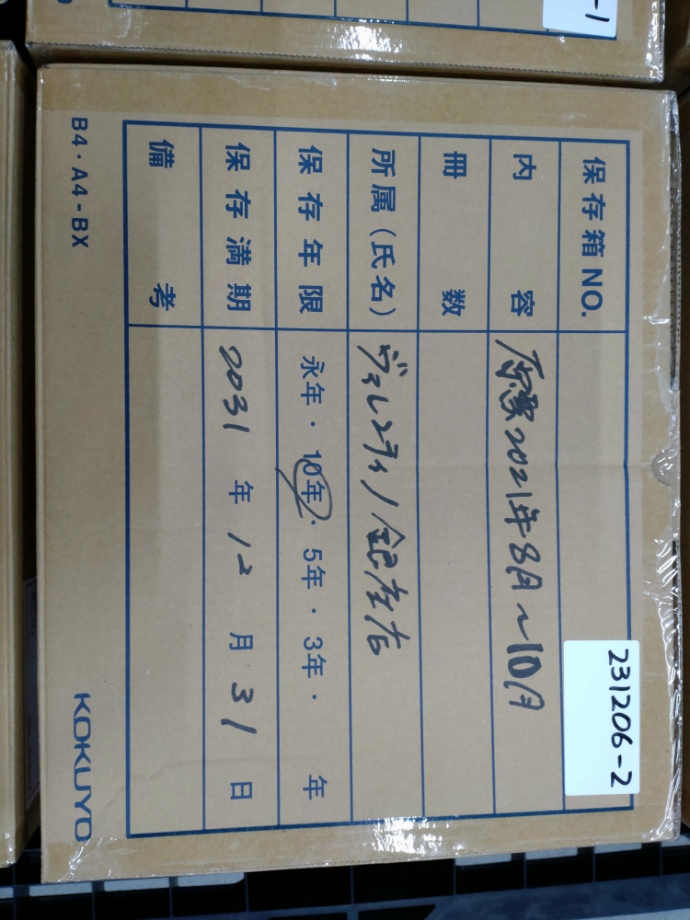 -1
保存箱NO.
内容 原票2021年8月～10月
冊数
所属(氏名) ヴァレンティノ銀座店
保存年限 永年・10年・5年・3年・ 年
保存満期 2031年12月31日
備考
231206-2
B4・A4-BX
KOKUYO